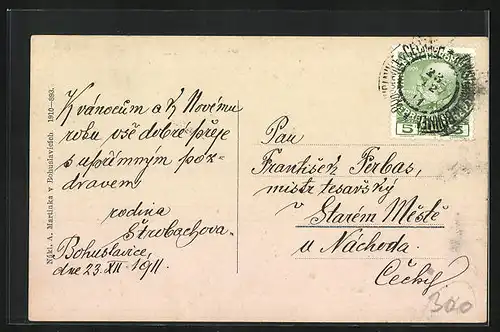 Nákl. A. Martinka v Bohuslavicích 1910—893.
K vánocům a k Novému
roku vše dobré přeje
s upřímným poz-
dravem
rodina
Štrobachova.
Bohuslavice,
dne 23.XII 1911.
5
Pan
František Ferbas,
mistr tesařský
v Starém Městě
u Náchoda.
Čechy.
300